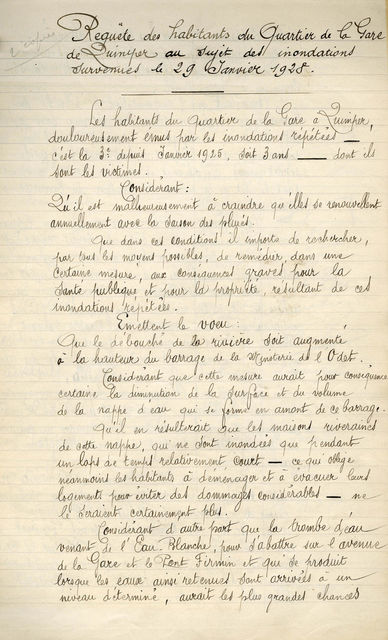 Requête des habitants du Quartier de la Gare
de Quimper au sujet des inondations
survenues le 29 Janvier 1928.
Les habitants du Quartier de la Gare à Quimper,
douloureusement émus par les inondations répétées —
c'est la 3e depuis Janvier 1925, soit 3 ans — dont ils
sont les victimes.
Considérant :
Qu'il est malheureusement à craindre qu'elles se renouvellent
annuellement avec la saison des pluies.
Que dans ces conditions il importe de rechercher,
par tous les moyens possibles, de remédier, dans une
certaine mesure, aux conséquences graves pour la
santé publique et pour la propriété, résultant de ces
inondations répétées.
Emettent le voeu :
Que le débouché de la rivière soit augmenté
à la hauteur du barrage de la Minoterie de l'Odet.
Considérant que cette mesure aurait pour conséquence
certaine la diminution de la surface et du volume
de la nappe d'eau qui se forme en amont de ce barrage.
Qu'il en résulterait que les maisons riveraines
de cette nappe, qui ne sont inondées que pendant
un laps de temps relativement court — ce qui oblige
néanmoins les habitants à déménager et à évacuer leurs
logements pour éviter des dommages considérables — ne
le seraient certainement plus.
Considérant d'autre part que la trombe d'eau
venant de l'Eau-Blanche, pour s'abattre sur l'avenue
de la Gare et le Pont Firmin et qui se produit
lorsque les eaux ainsi retenues sont arrivées à un
niveau déterminé, aurait les plus grandes chances